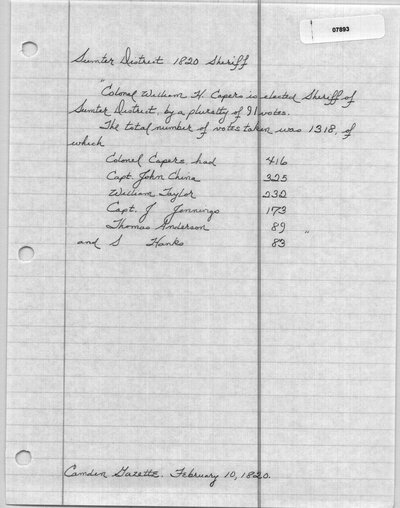 07893
Sumter District 1820 Sheriff
"Colonel William H. Capers is elected Sheriff of
Sumter District, by a plurality of 91 votes.
The total number of votes taken was 1318, of
which
Colonel Capers had 416
Capt. John China 325
William Taylor 232
Capt. J Jennings 173
Thomas Anderson 89
and S Hanks 83 "
Camden Gazette. February 10, 1820.